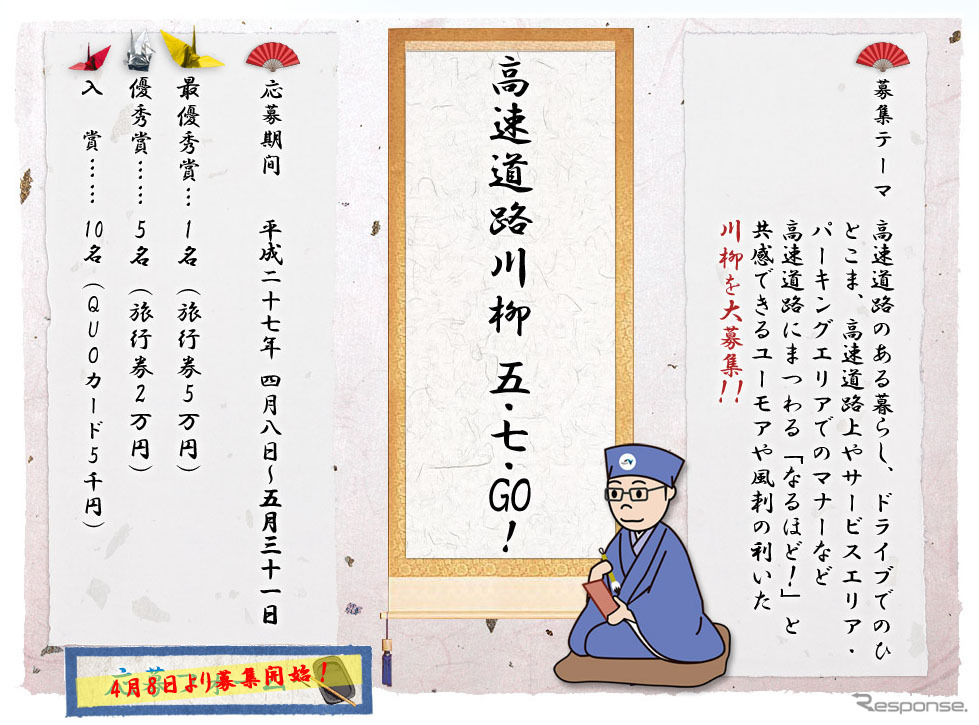 募集テーマ
高速道路のある暮らし、ドライブでのひ
とこま、高速道路上やサービスエリア・
パーキングエリアでのマナーなど
高速道路にまつわる「なるほど！」と
共感できるユーモアや風刺の利いた
川柳を大募集!!
高速道路川柳 五・七・GO！
応募期间 平成二十七年 四月八日〜五月三十一日
最優秀賞… 1名（旅行券5万円）
優秀賞…… 5名（旅行券2万円）
入 賞…… 10名（QUOカード5千円）
4月8日より募集開始！
Response.